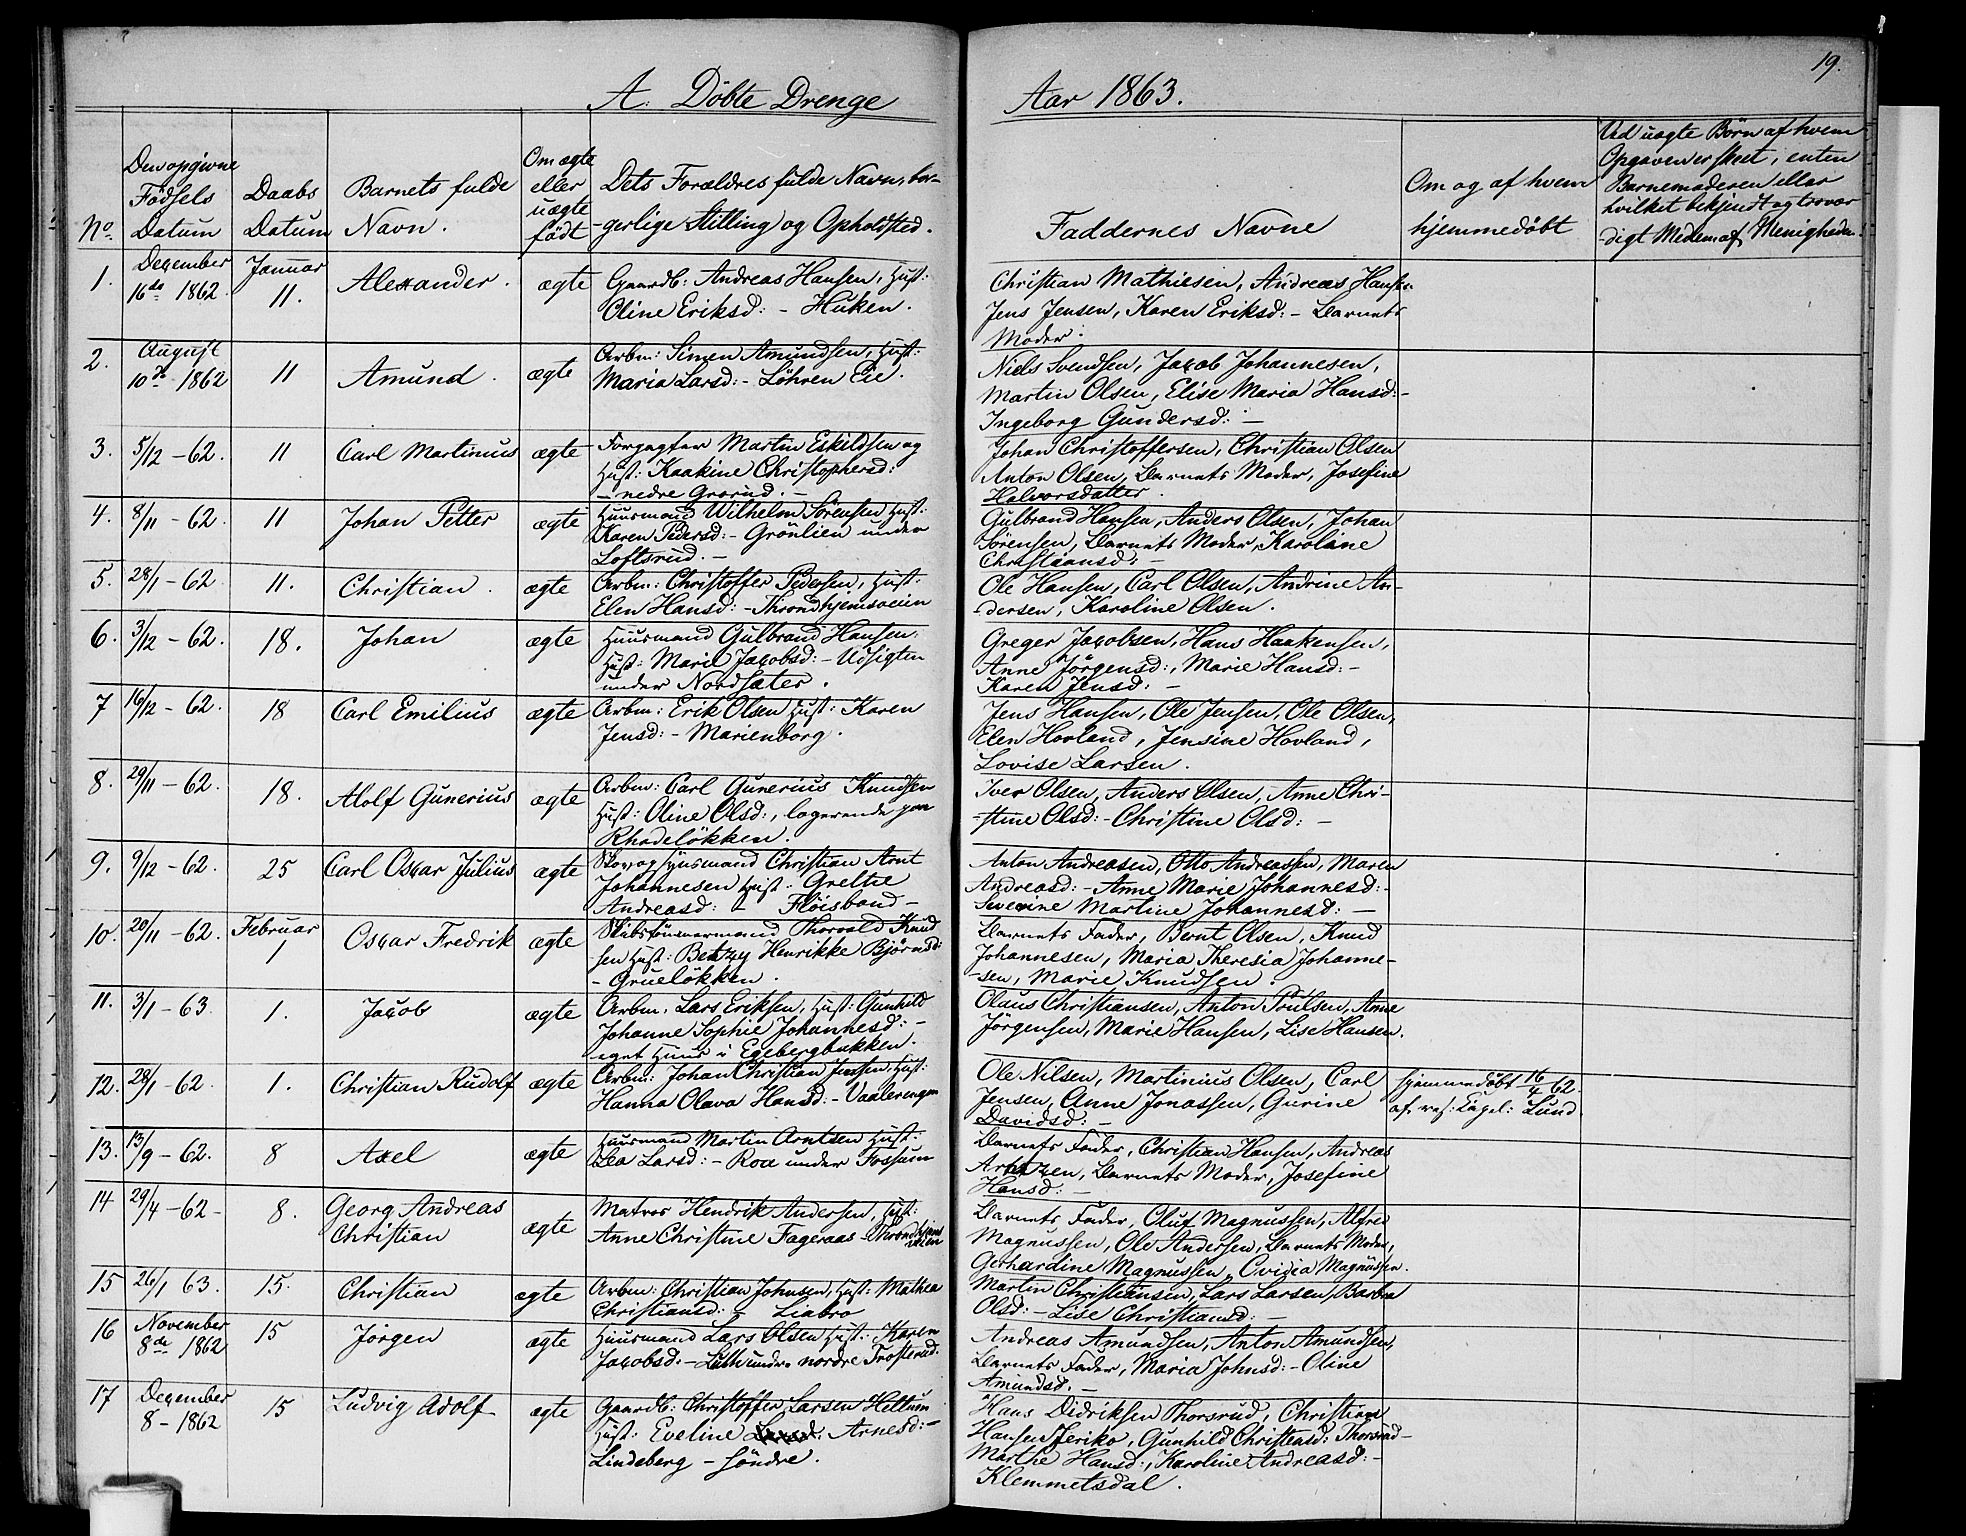 19.
A. Döbte Drenge Aar 1863.
No.
Den opgivne
Födsels
Datum
Daabs
Datum
Barnets fulde
Navn.
Om ægte
eller
uægte
födt
Dets Forældres fulde Navn, bor-
gerlige Stilling og Opholdsted.
Faddernes Navne
Om og af hvem
hjemmedöbt
Ved uægte Börn af hvem
Opgaven er skeet, enten
Barnemoderen eller
hvilket bekjendt og trovær
digt Medem af Menigheden.
1. Dezember
16de 1862.
Januar
11.
Alexander.
ægte
Gaardb: Andreas Hansen, Hust:
Oline Eriksd: - Huken.
Christian Mathiesen, Andreas Hansen
Jens Jensen, Karen Eriksd: - Barnets
Moder.
2. August
10de 1862
11
Amund.
ægte
Arbm: Simen Amundsen, Hust:
Maria Larsd: - Löhren Eie.
Niels Svendsen, Jacob Johannesen,
Martin Olsen, Elise Maria Hansd: -
Ingeborg Gundersd: -
3. 5/12 - 62.
11
Carl Martinius
ægte
Forpagter Martin Eskildsen og
Hust: Kaakine Christophersd:
- nedre Grorud. -
Johan Christoffersen, Christian Olsen
Anton Olsen, Barnets Moder, Josefine
Halvorsdatter.
4. 8/11 - 62.
11
Johan Petter
ægte
Huusmand Wilhelm Sörensen Hust:
Karen Pedersd: - Grönlien under
Loftsrud. -
Gulbrand Hansen, Anders Olsen, Johan
Sörensen, Barnets Moder, Karoline
Christiansd: -
5. 28/1 - 62.
11.
Christian.
ægte
Arbm: Christoffer Pedersen, Hust:
Elen Hansd: - Throndhjemsveien
Ole Hansen, Carl Olsen, Andrine An-
dersen, Karoline Olsen.
6. 3/12 - 62.
18.
Johan
ægte
Huusmand Gulbrand Hansen.
Hust: Marie Jacobsd: - Udsigten
under Nordsæter.
Greger Jacobsen, Hans Haakensen,
Anne Jörgensd:, Marie Hansd: -
Karen Jensd: -
7 16/12 - 62.
18
Carl Emilius
ægte
Arbm: Erik Olsen Hust: Karen
Jensd: - Marienborg.
Jens Hansen, Ole Jensen, Ole Olsen,
Elen Hovland, Jensine Hovland,
Lovise Larsen.
8. 29/11 - 62.
18.
Alolf Gunerius
ægte
Arbm: Carl Gunerius Knudsen
Hust: Oline Olsd:, logerende paa
Rhodelökken.
Iver Olsen, Anders Olsen, Anne Chri-
stine Olsd: - Christine Olsd: -
9. 9/12 - 62.
25
Carl Oscar Julius
ægte
Skovopsynsmand Christian Arnt
Johannesen Hust: Grethe
Andreasd: - Flöisbond -
Anton Andreasen, Otto Andreassen, Maren
Andreasd: - Anne Marie Johannesd: -
Severine Martine Johannesd: -
10. 20/11 - 62.
Februar
1
Oscar Fredrik
ægte
Skibstömmermand Thorvald Knud
sen Hust: Betzy Henrikke Björnsd:
- Gruelökken.
Barnets Fader, Bernt Olsen, Knud
Johannesen, Maria Theresia Johanne-
sen, Marie Knudsen.
11. 3/1 - 63.
1.
Jacob
ægte
Arbm: Lars Eriksen, Hust: Gunhild
Johanne Sophie Johannesd: -
eget Huus i Egebergbakken.
Olaus Christiansen, Anton Poulsen, Anne
Jörgensen, Marie Hansen, Lise Hansen.
12. 28/1 - 62.
1.
Christian Rudolf
ægte
Arbm: Johan Christian Jenssen, Hust:
Hanna Olava Hansd: - Vaalerengen
Ole Nilsen, Martinius Olsen, Carl
Jensen, Anne Jonassen, Gurine
Davidsd: -
hjemmedöbt 16/4 62.
af res: Capel: Lund.
13. 13/9 - 62.
8
Axel
ægte
Huusmand Martin Arntsen Hust:
Lea Larsd: - Roa under Fossum
Barnets Fader, Christian Hansen, Andreas
Arntzen, Barnets Moder, Josefine
Hansd: -
14 29/4 - 62 -
8.
Georg Andreas
Christian
ægte
Matros Hendrik Andersen, Hust:
Anne Christine Fageraas - Throndhjems
veien
Barnets Fader, Oluf Magnussen, Alfred
Magnussen, Ole Andersen, Barnets Moder,
Gerhardine Magnussen, Ovidia Magnussen.
15 26/1 63.
15.
Christian
ægte
Arbm: Christian Johnsen, Hust: Mathea
Christiansd: - Liabro
Martin Christiansen, Lars Larsen, Barbra
Olsd: - Lise Christiansd: -
16 November
8de 1862
15
Jörgen
ægte
Huusmand Lars Olsen Hust: Karen
Jacobsd: - Luth under nordre Trosterud.
Andreas Amundsen, Anton Amundsen,
Barnets Fader, Maria Johnsd: - Oline
Amundsd. -
17 Dezember
8 - 1862
15
Ludvig Adolf
ægte
Gaardb: Christoffer Larsen Hellum
Hust: Eveline Arnesd: -
Lindeberg - söndre.
Hans Didriksen Thorsrud, Christian
Hansen Jeriko, Gunhild Christensd: Thorsrud -
Marthe Hansd:, Karoline Andreasd: -
Klemmetsdal.